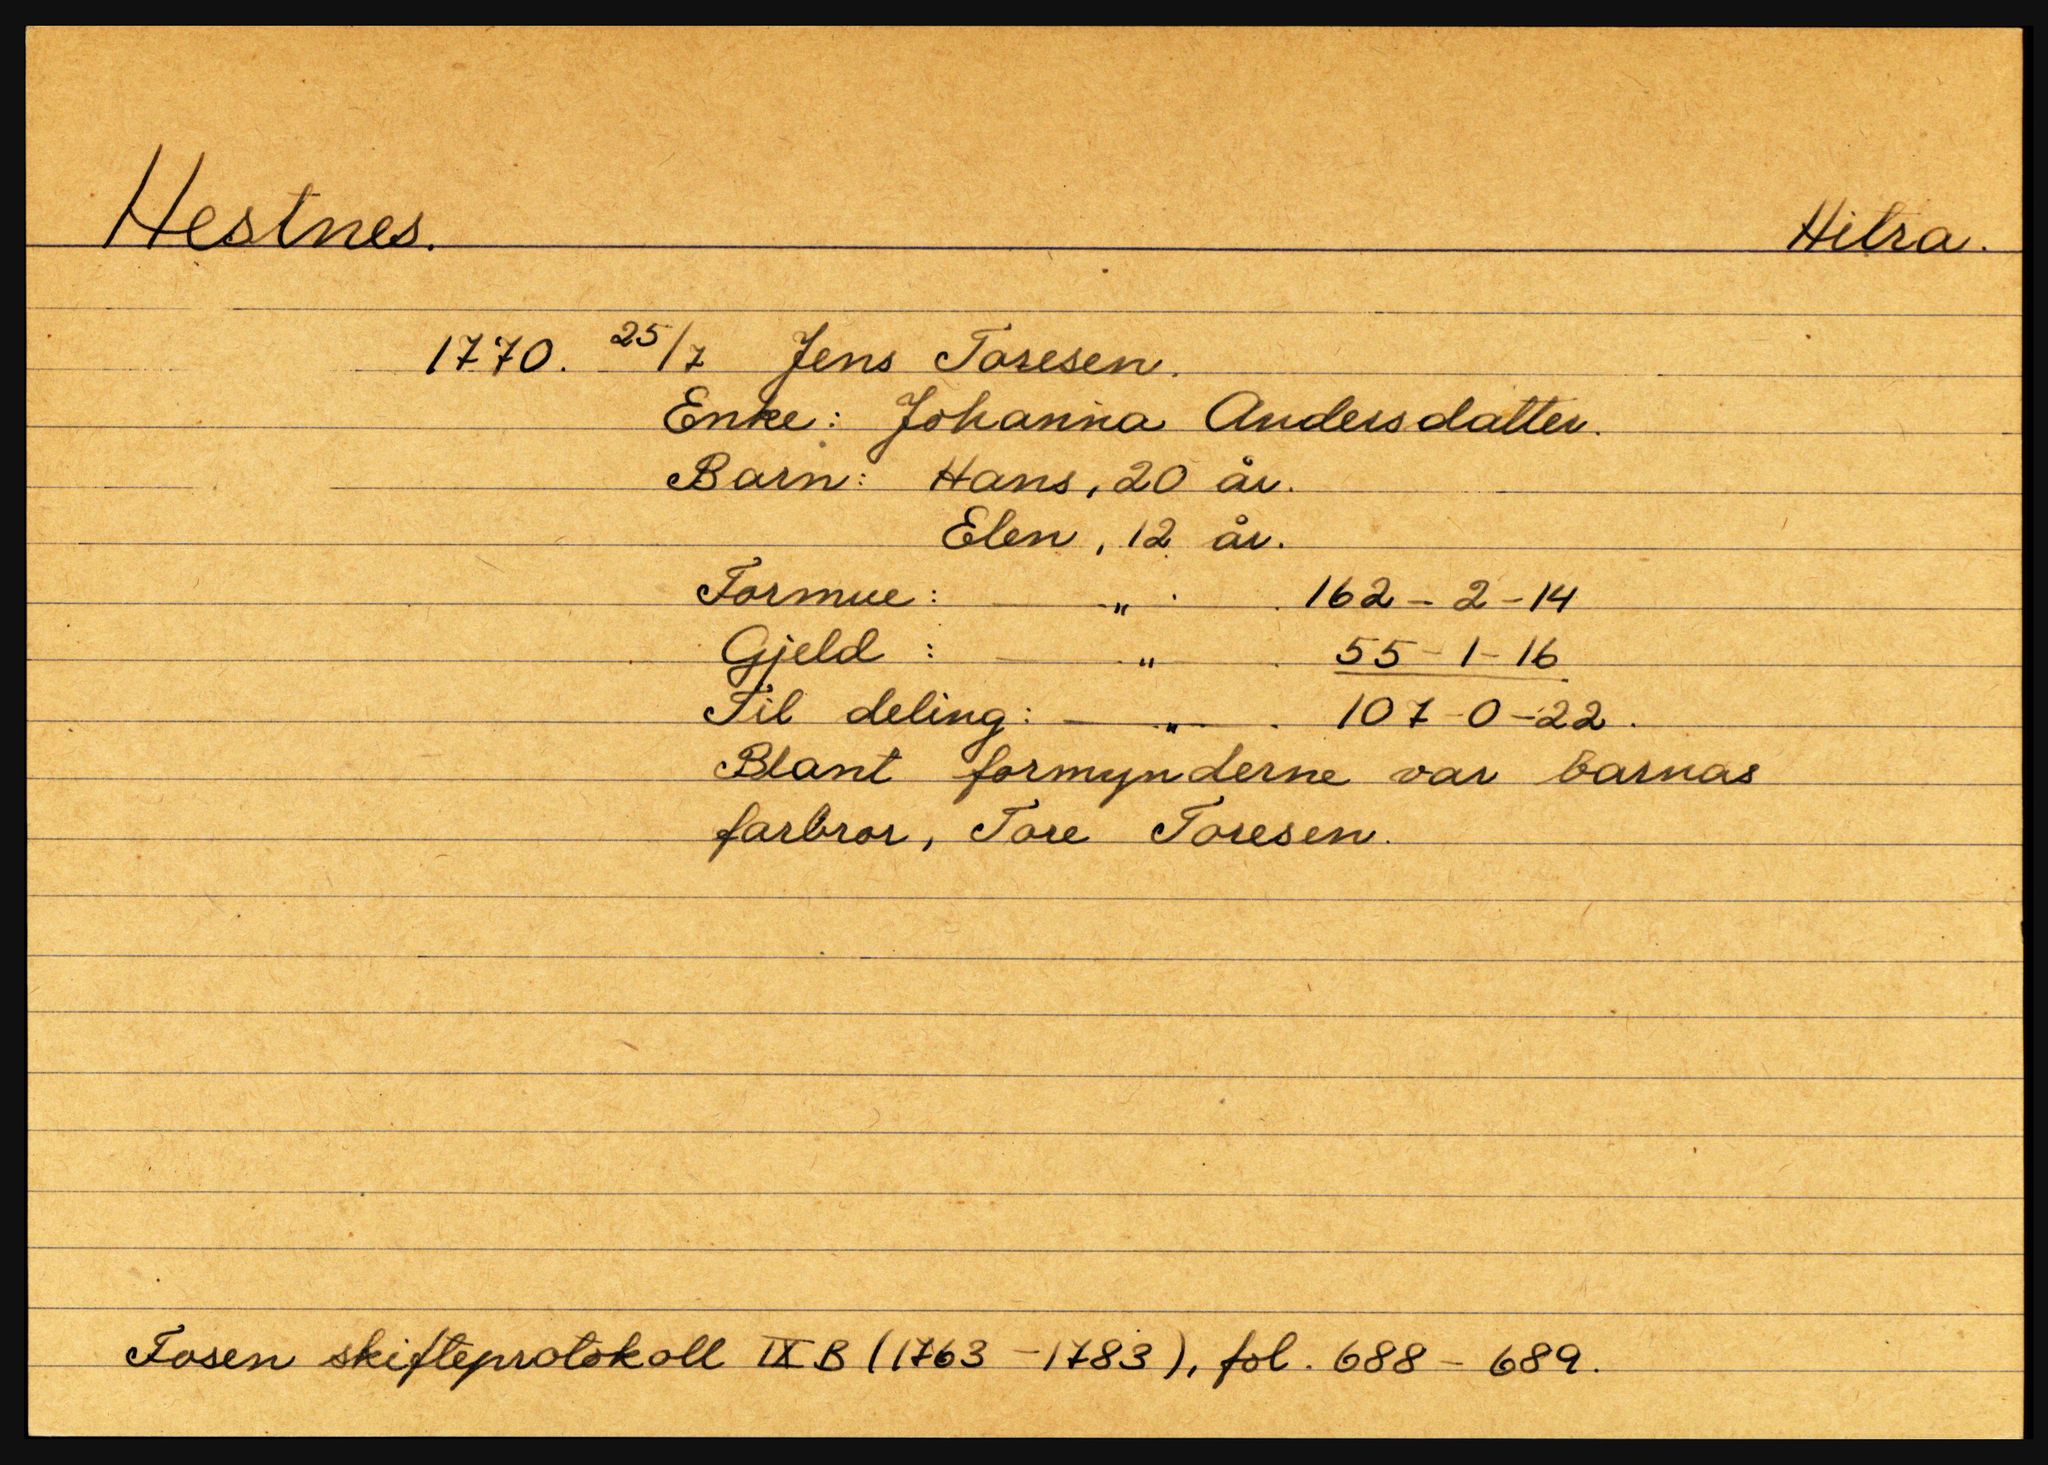 Hestnes. Hitra.
1770. 25/7 Jens Toresen.
Enke: Johanna Andersdatter.
Barn: Hans, 20 år.
Elen, 12 år.
Formue: — „ — . 162 - 2 - 14
Gjeld : — „ — . 55 - 1 - 16
Til deling: — „ — . 107 - 0 - 22.
Blant formynderne var barnas
farbror, Tore Toresen.
Fosen skifteprotokoll IX B (1763 - 1783), fol. 688 - 689.